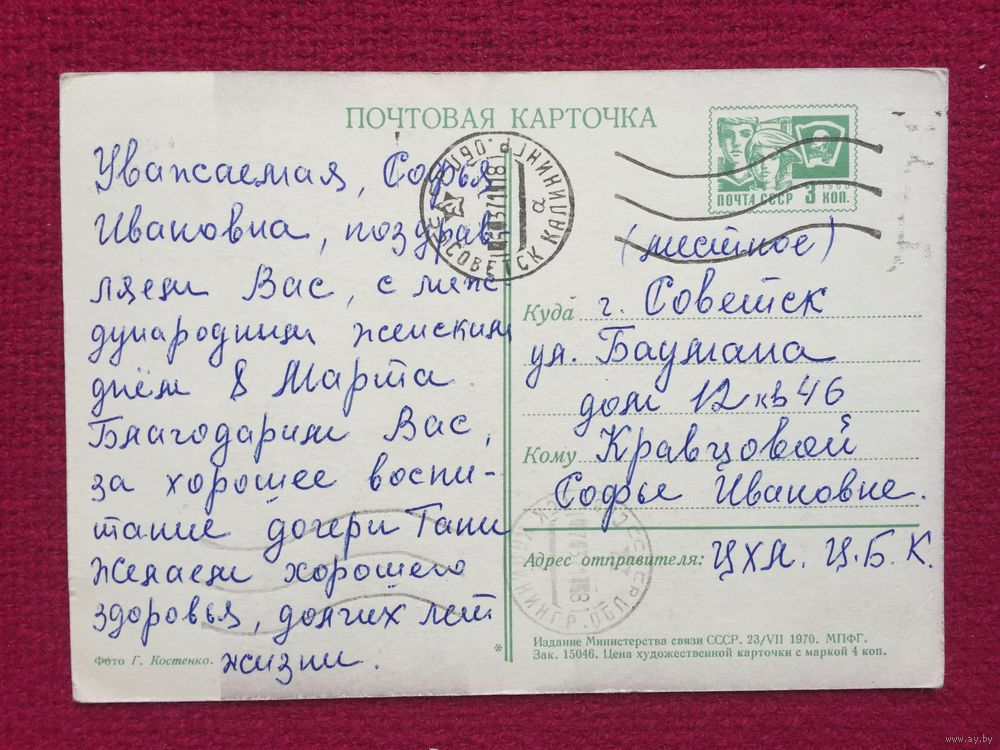 ПОЧТОВАЯ КАРТОЧКА
Уважаемая, Софья
Ивановна, поздрав-
ляем Вас, с меж
дународним женским
днём 8 Марта.
Благодарим Вас,
за хорошее воспи-
тание дочери Тани
желаем хорошего
здоровья, долгих лет
жизни.
Фото Г. Костенко.
СОВЕТСК КАЛИНИНГР. ОБЛ.
а
ПОЧТА СССР 3 КОП.
ВЛКСМ
1966
(местное)
Куда г. Советск
ул. Баумана
дом 12 кв 46
Кому Кравцовой
Софье Ивановне.
Адрес отправителя: ЦХЛ. Ц.Б.К.
Издание Министерства связи СССР. 23/VII 1970. МПФГ.
Зак. 15046. Цена художественной карточки с маркой 4 коп.
*
www.ay.by